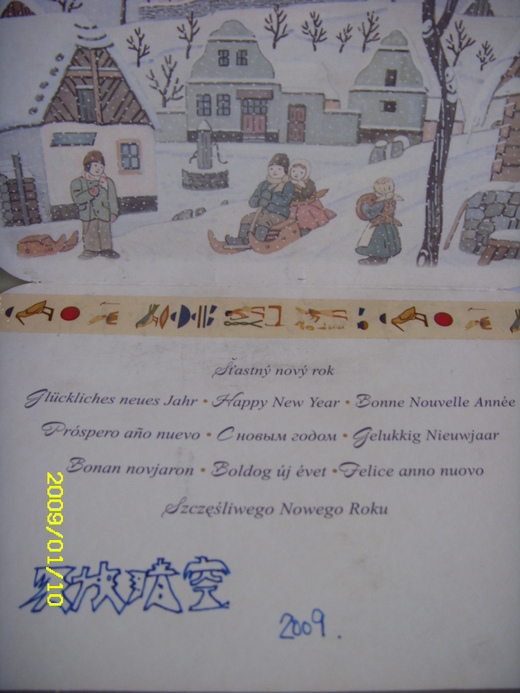 Šťastný nový rok
Glückliches neues Jahr • Happy New Year • Bonne Nouvelle Année
Próspero año nuevo • С новым годом • Gelukkig Nieuwjaar
Bonan novjaron • Boldog új évet • Felice anno nuovo
Szczęśliwego Nowego Roku
晴空
2009.
2009/01/10